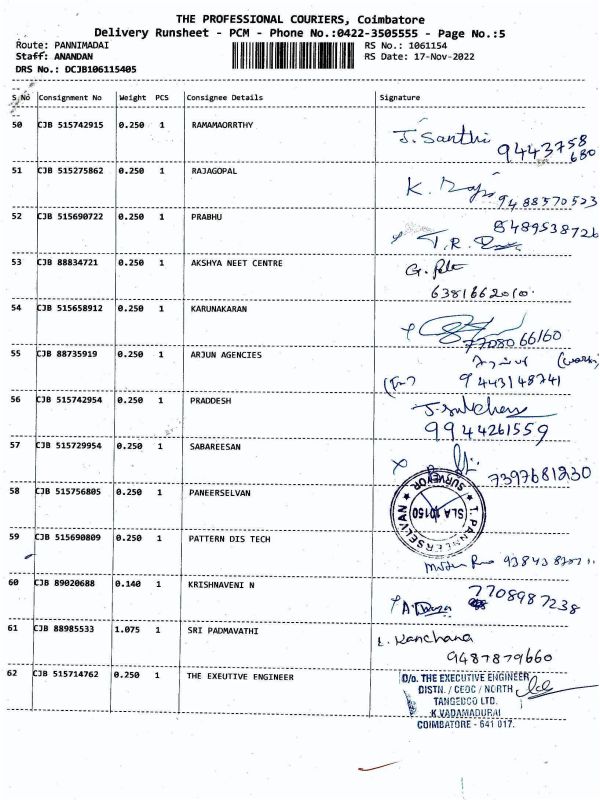 THE PROFESSIONAL COURIERS, Coimbatore
Delivery Runsheet - PCM - Phone No.:0422-3505555 - Page No.:5
Route: PANNIMADAI
RS No.: 1061154
Staff: ANANDAN
RS Date: 17-Nov-2022
DRS No.: DCJB106115405
S No Consignment No Weight PCS Consignee Details Signature
50 CJB 515742915 0.250 1 RAMAMAORRTHY J. Santhi
9443758
680
51 CJB 515275862 0.250 1 RAJAGOPAL K.
9488570523
52 CJB 515690722 0.250 1 PRABHU 8489538726
T.R.
53 CJB 88834721 0.250 1 AKSHYA NEET CENTRE G.
6381662010.
54 CJB 515658912 0.250 1 KARUNAKARAN
7708066160
55 CJB 88735919 0.250 1 ARJUN AGENCIES
9443148741
56 CJB 515742954 0.250 1 PRADDESH
9944261559
57 CJB 515729954 0.250 1 SABAREESAN
7397681230
58 CJB 515756805 0.250 1 PANEERSELVAN
★ T. PANNEERSELVAN ★ SURVEYOR
SLA 10150
59 CJB 515690809 0.250 1 PATTERN DIS TECH
60 CJB 89020688 0.140 1 KRISHNAVENI N 7708987238
61 CJB 88985533 1.075 1 SRI PADMAVATHI L. Kanchana
9487879660
62 CJB 515714762 0.250 1 THE EXEUTIVE ENGINEER O/o. THE EXECUTIVE ENGINEER
DISTN. / CEDC / NORTH
TANGEDCO LTD.
K.VADAMADURAI
COIMBATORE - 641 017.